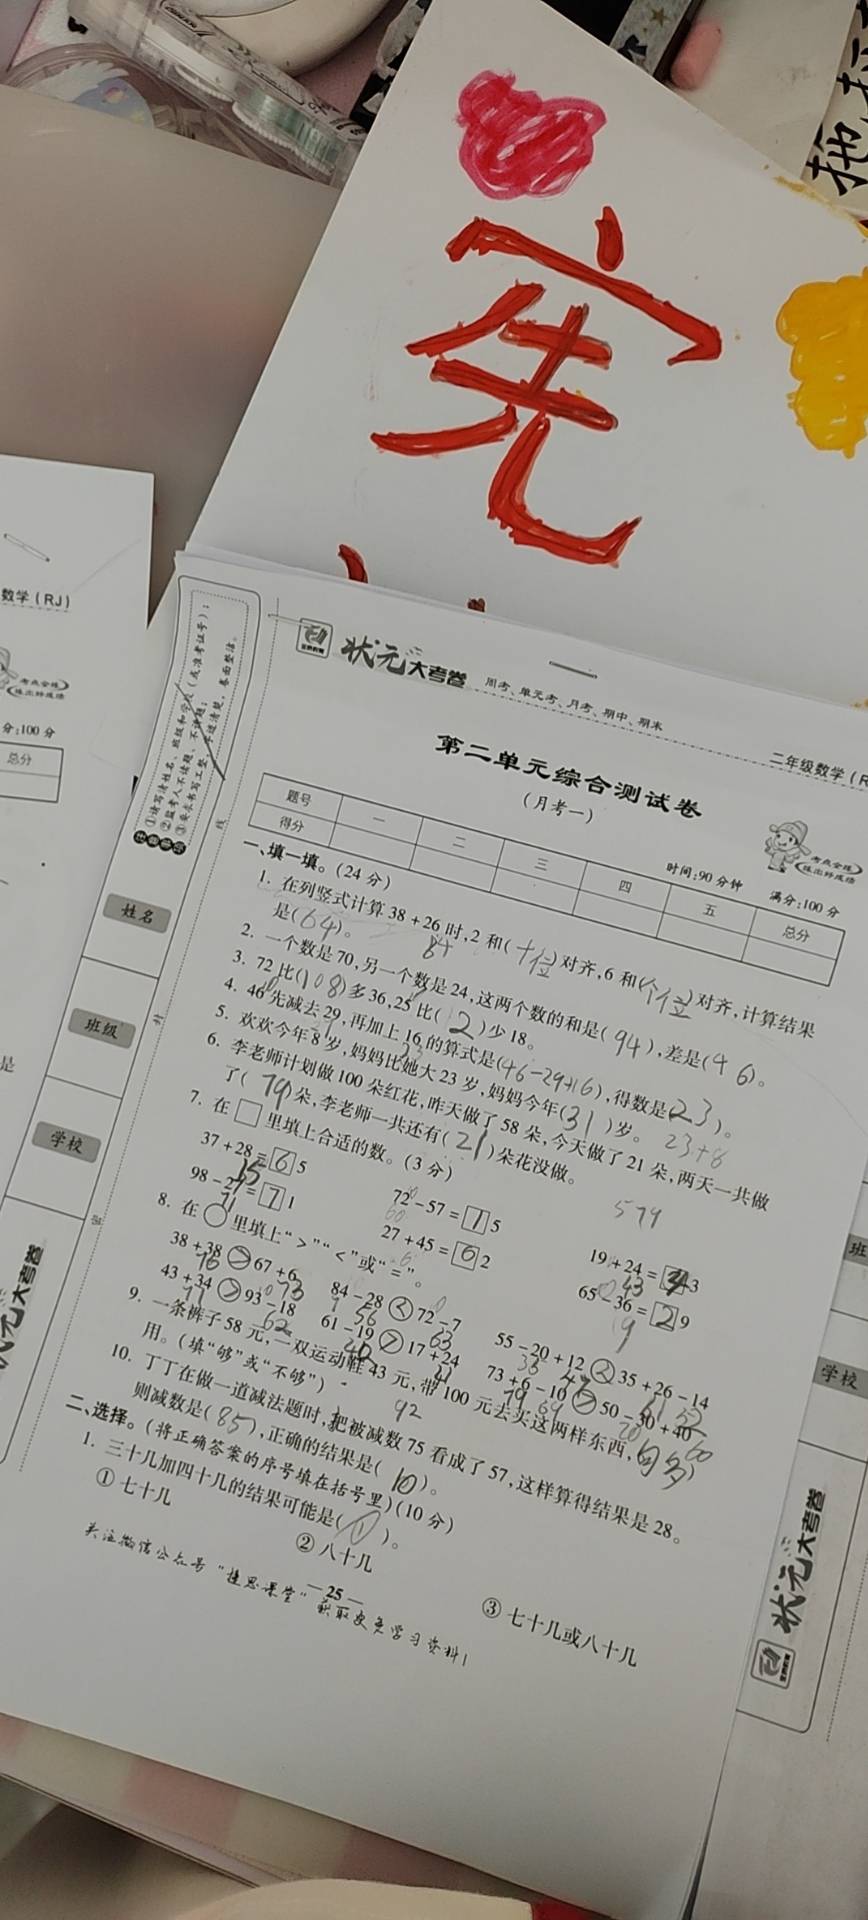 宪
数学(RJ)
分:100分
总分
状元大考卷 周考、单元考、月考、期中、期末
二年级数学(R
第二单元综合测试卷
(月考一)
考点全练
练出好成绩
时间:90分钟 满分:100分
题号 一 二 三 四 五 总分
得分
姓名
班级
学校
一、填一填。(24分)
1. 在列竖式计算38+26时,2和(十位)对齐,6和(个位)对齐,计算结果
是(64)。
2. 一个数是70,另一个数是24,这两个数的和是(94),差是(46)。
3. 72比(108)多36,25比(2)少18。
4. 46先减去29,再加上16的算式是(46-29+16),得数是(23)。
5. 欢欢今年8岁,妈妈比她大23岁,妈妈今年(31)岁。 23+8
6. 李老师计划做100朵红花,昨天做了58朵,今天做了21朵,两天一共做
了(79)朵,李老师一共还有(21)朵花没做。
579
7. 在□里填上合适的数。(3分)
37+28=6 5 72-57=1 5 19+24= 3
98-27=7 1 27+45=6 2 65-36=2 9
8. 在○里填上“>”“<”或“=”。
38+38>67+6 84-28<72-7 55-20+12<35+26-14
43+34>93-18 61-19>17+24 73+6-10>50-30+40
9. 一条裤子58元,一双运动鞋43元,带100元去买这两样东西,(句多)
用。(填“够”或“不够”)
92
10. 丁丁在做一道减法题时,把被减数75看成了57,这样算得结果是28。
则减数是(85),正确的结果是(10)。
二、选择。(将正确答案的序号填在括号里)(10分)
1. 三十几加四十几的结果可能是(①)。
① 七十几 ② 八十几 ③ 七十几或八十几
— 25 —
状元大考卷
学校